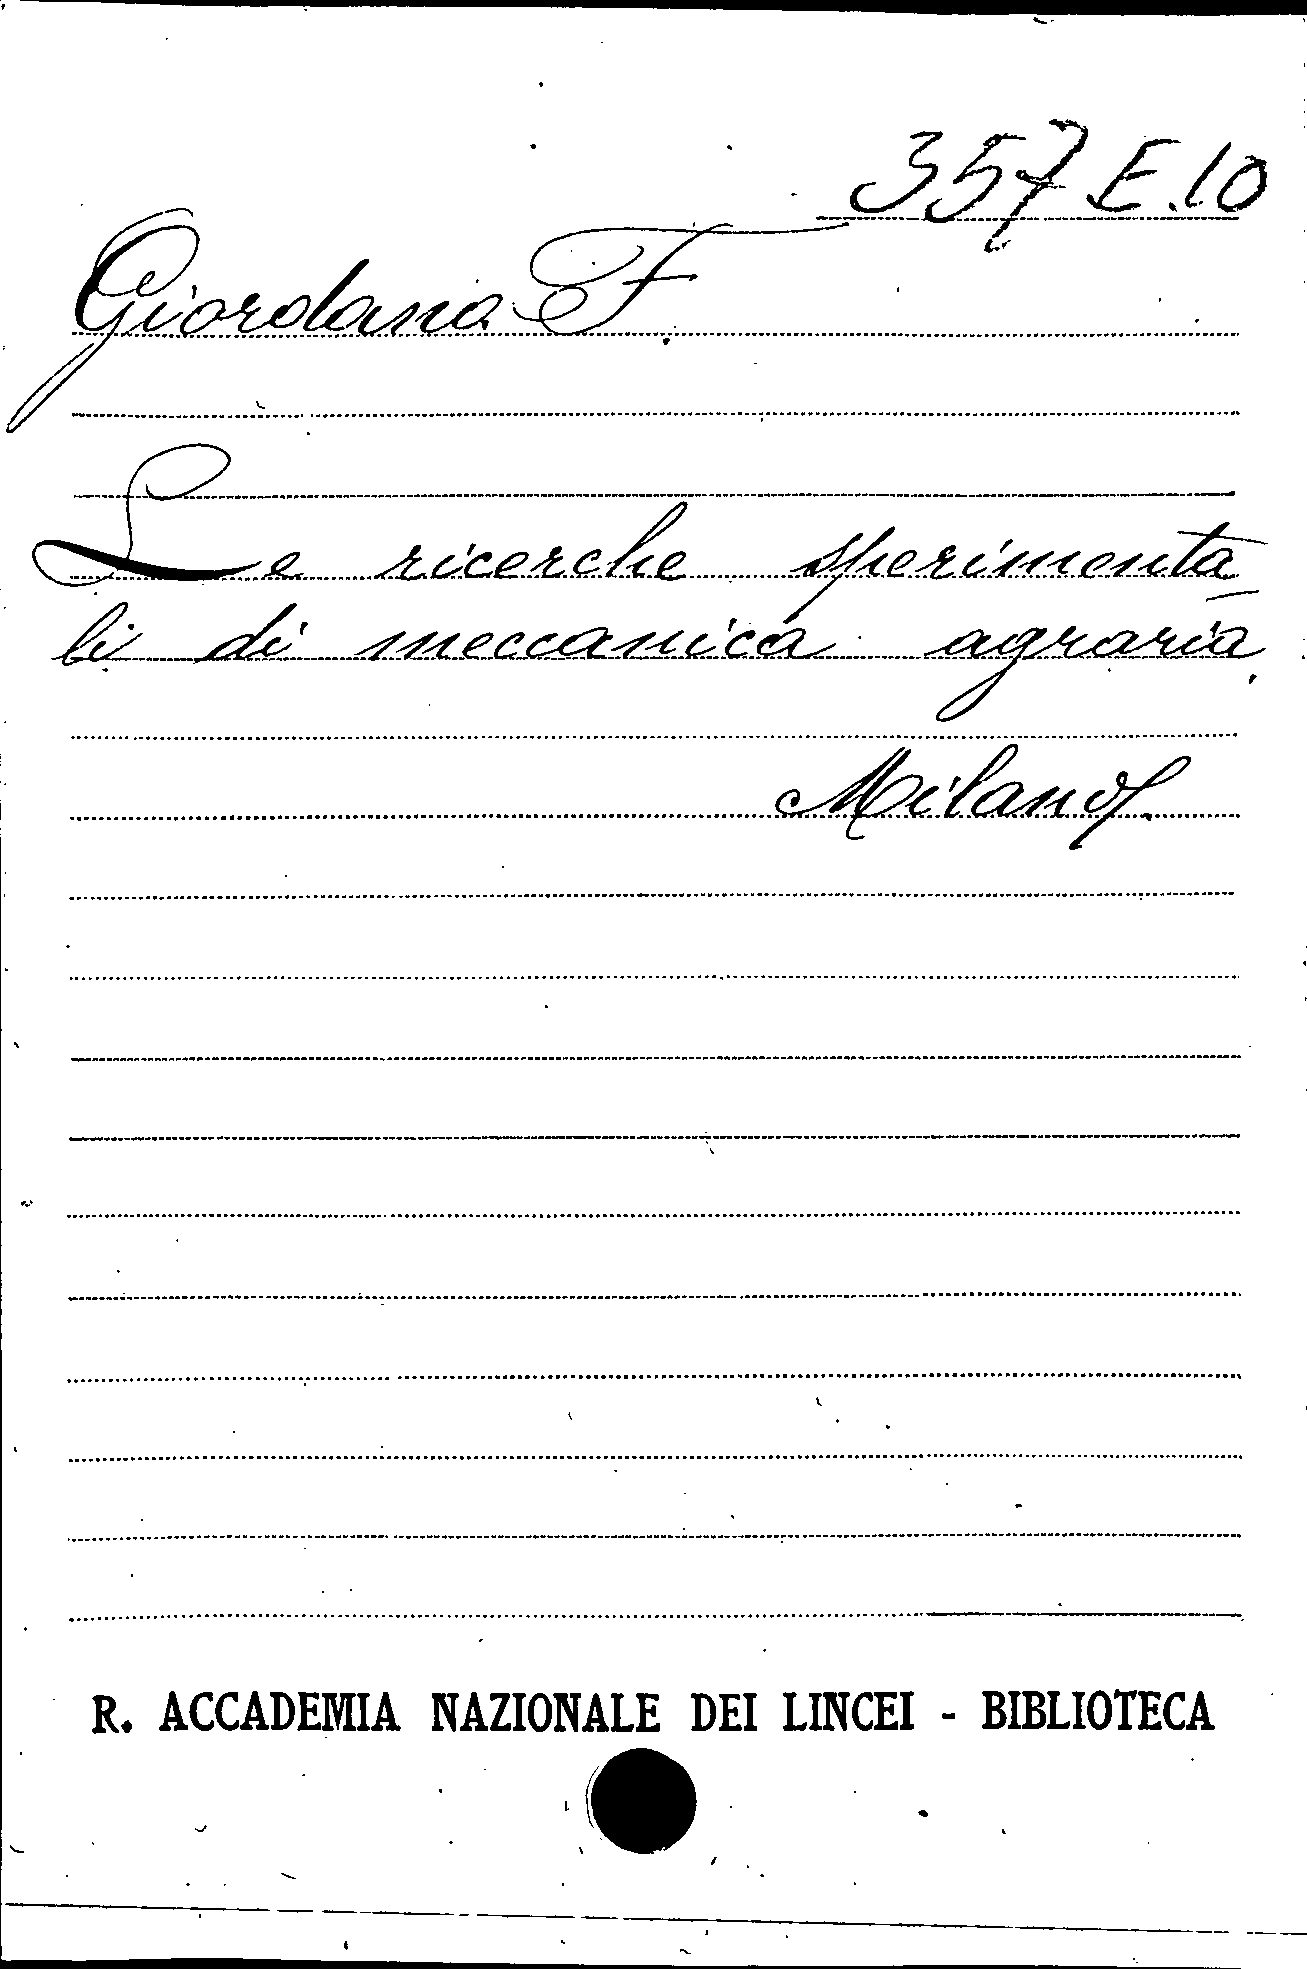 357 E.10
Giordano F.
Le ricerche sperimenta-
li di meccanica agraria.
Milano.
R. ACCADEMIA NAZIONALE DEI LINCEI - BIBLIOTECA